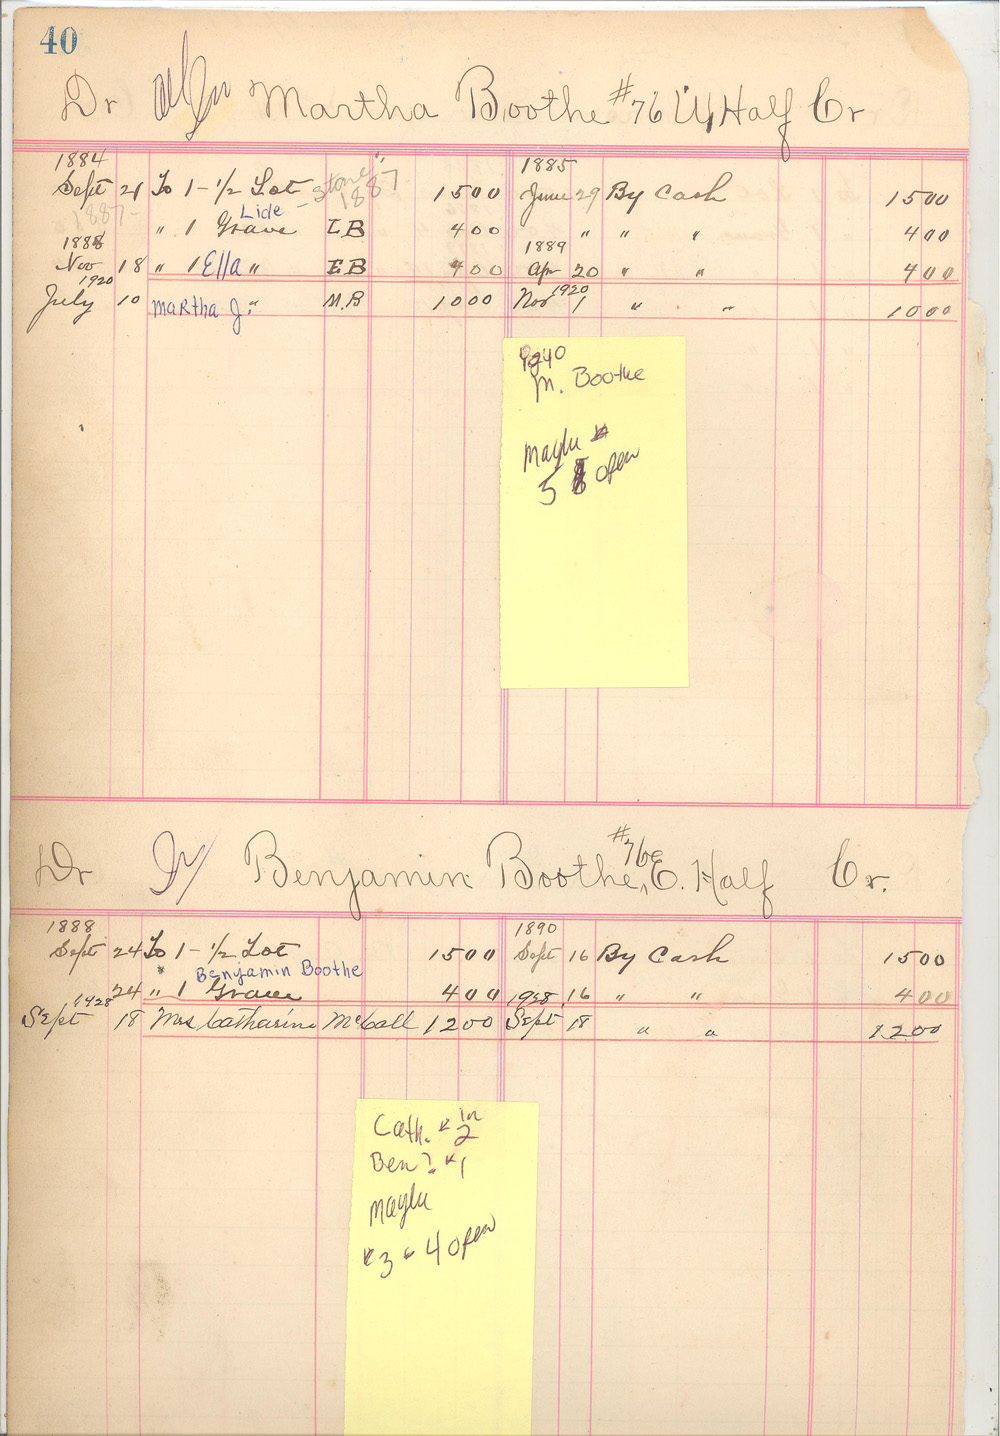 40
Dr Martha Boothe #76 W, Half Cr
1884 1885
Sept 21 To 1-½ Lot - Stone "1887" 1500 June 29 By Cash 1500
1887- " 1 Lide Grave LB 400 " " " 400
1888 1889
Nov 18 " 1 Ella " EB 400 Apr 20 " " 400
July 1920 10 Martha J. " M.B 1000 Nov 1920 1 " " 1000
M. Boothe
Maybe
5 open
Dr Benjamin Boothe, #76 E. Half Cr.
1888 1890
Sept 24 To 1-½ Lot 1500 Sept 16 By Cash 1500
Benjamin Boothe
24 " 1 Grave 400 16 " " 400
Sept 1928 18 Mrs Catharine McCall 1200 1928 Sept 18 " " 1200
Cath. in 2
Ben? 1
Maybe
3 4 open